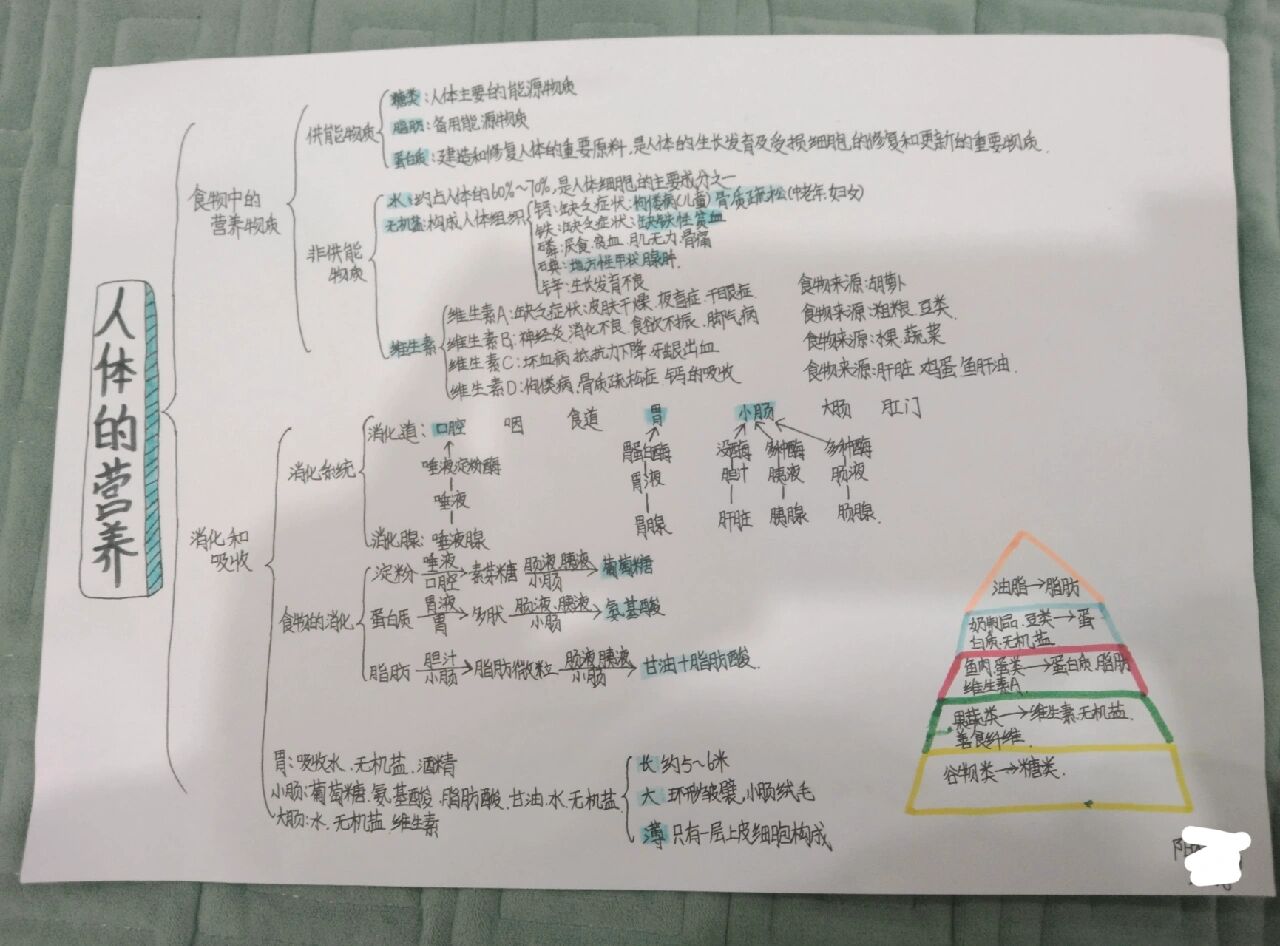 人体的营养
食物中的
营养物质
供能物质
糖类:人体主要的能源物质
脂肪:备用能源物质
蛋白质:建造和修复人体的重要原料,是人体的生长发育及受损细胞的修复和更新的重要物质.
非供能
物质
水:约占人体的60%~70%,是人体细胞的主要成分之一
无机盐:构成人体组织
钙:缺乏症状:佝偻病(儿童)骨质疏松(中老年.妇女)
铁:缺乏症状:缺铁性贫血
磷:厌食.贫血.肌无力.骨痛
碘:地方性甲状腺肿.
锌:生长发育不良
维生素
维生素A:缺乏症状:皮肤干燥.夜盲症.干眼症 食物来源:胡萝卜
维生素B:神经炎.消化不良.食欲不振.脚气病 食物来源:粗粮.豆类.
维生素C:坏血病.抵抗力下降.牙龈出血 食物来源:水果.蔬菜
维生素D:佝偻病.骨质疏松症.钙的吸收 食物来源:肝脏.鸡蛋.鱼肝油.
消化和
吸收
消化系统
消化道:口腔 咽 食道 胃 小肠 大肠 肛门
唾液淀粉酶 胃蛋白酶 没酶 多种酶 多种酶
唾液 胃液 胆汁 胰液 肠液
消化腺:唾液腺 胃腺 肝脏 胰腺 肠腺.
食物的消化
淀粉 唾液 口腔 → 麦芽糖 肠液.胰液 小肠 → 葡萄糖
蛋白质 胃液 胃 → 多肽 肠液.胰液 小肠 → 氨基酸
脂肪 胆汁 小肠 → 脂肪微粒 肠液.胰液 小肠 → 甘油+脂肪酸.
胃:吸收水.无机盐.酒精
小肠:葡萄糖.氨基酸.脂肪酸.甘油.水.无机盐.
大肠:水.无机盐.维生素
长 约5~6米
大 环形皱襞,小肠绒毛
薄 只有一层上皮细胞构成
油脂→脂肪
奶制品.豆类→蛋
白质.无机盐
鱼.肉.蛋类→蛋白质.脂肪
维生素A.
果蔬类→维生素.无机盐.
膳食纤维.
谷物类→糖类.